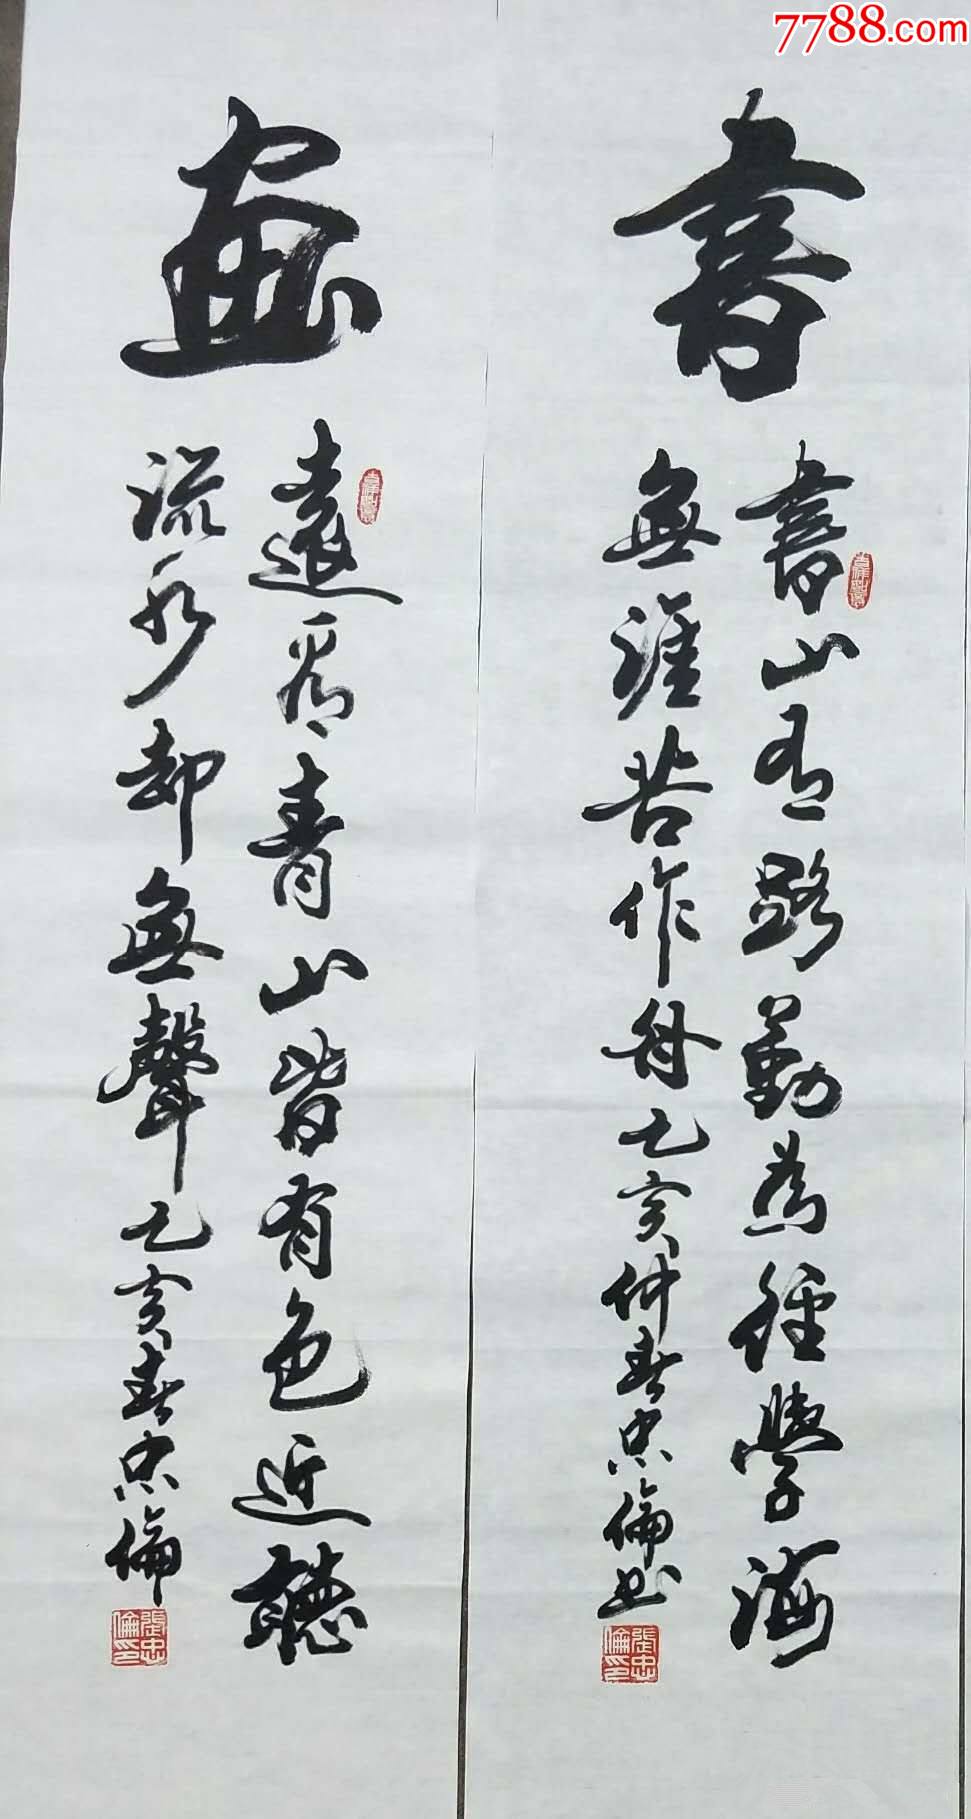 7788.com
書
書山有路勤為徑學海
無涯苦作舟己亥仲春忠倫書
張忠倫印
畫
遠看青山皆有色近聽
流水却無聲己亥春忠倫
張忠倫印